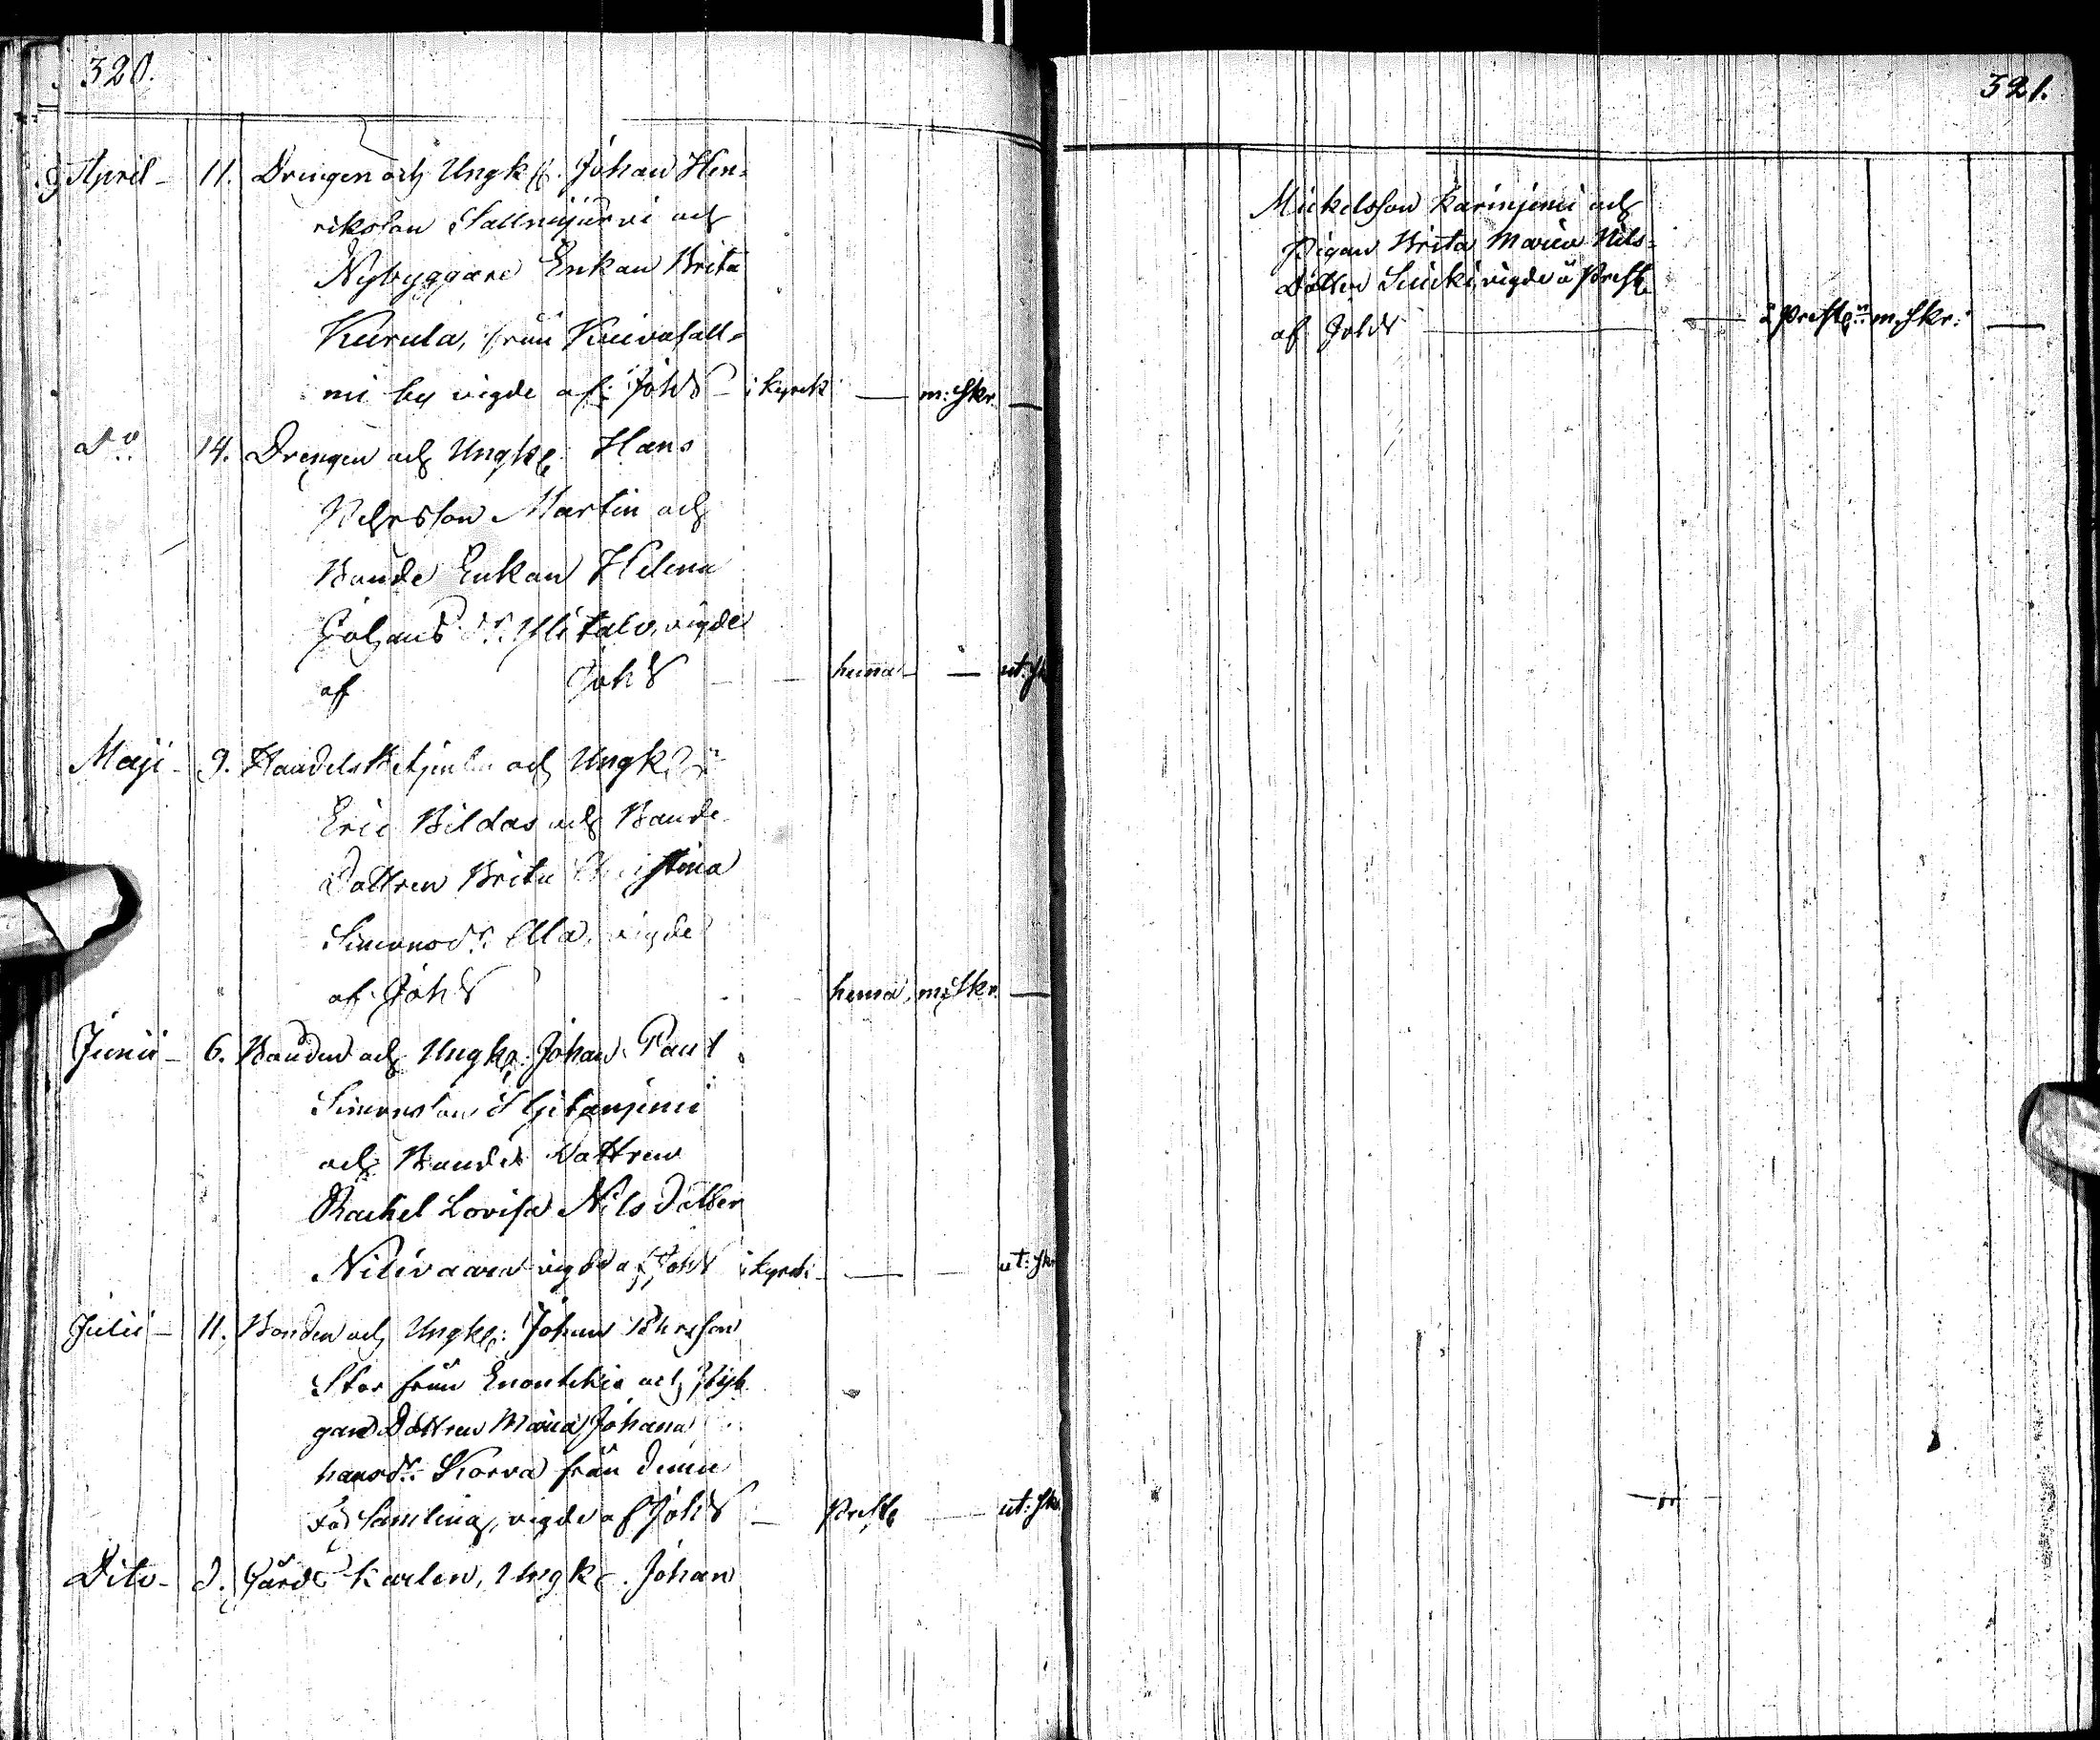 320.
April - 11. Drengen och Ungk. Johan Hen-
rikson Sallmijärvi och
Nybyggare Enkan Brita
Kurula, från
mi by vigde af: JohS - i kyrck: — m: Skr. —
Do 14. Drengen och Ungk: Hans
Pehrsson Martin och
Bonde Enkan Helena
Johans dr. Ylitalo, vigde
af JohS - - hema - — ut: Sk
Maji - 9. och Ungk:
Eric Bildas och Bonde
Dottren Brita Christina
Simonsdr. Alla, vigde
af JohS hema, m: Skr. —
Junii - 6. Bonden och Ungk: Johan Paul
Simonsson
och Bonde Dottren
Rachel Lovisa Nils Dotter
Nilivaara vigde af JohS i kyrck: — - ut: Skr
Julii - 11. Bonden och Ungk: Johan Pehrsson
Stor från Enontekis och Nyb
gare Dottren Maria Johana
hansdr. Korva från denne
Församling, vigde af JohS - Prestg — ut: Skr
Dito - d. Gårds karlen, Ungk. Johan
321.
Mickelsson Karinjemi och
Pigan Brita Maria Nils-
Dotter vigde å Prestg
af JohS — — å Prestg:n m: Skr: —